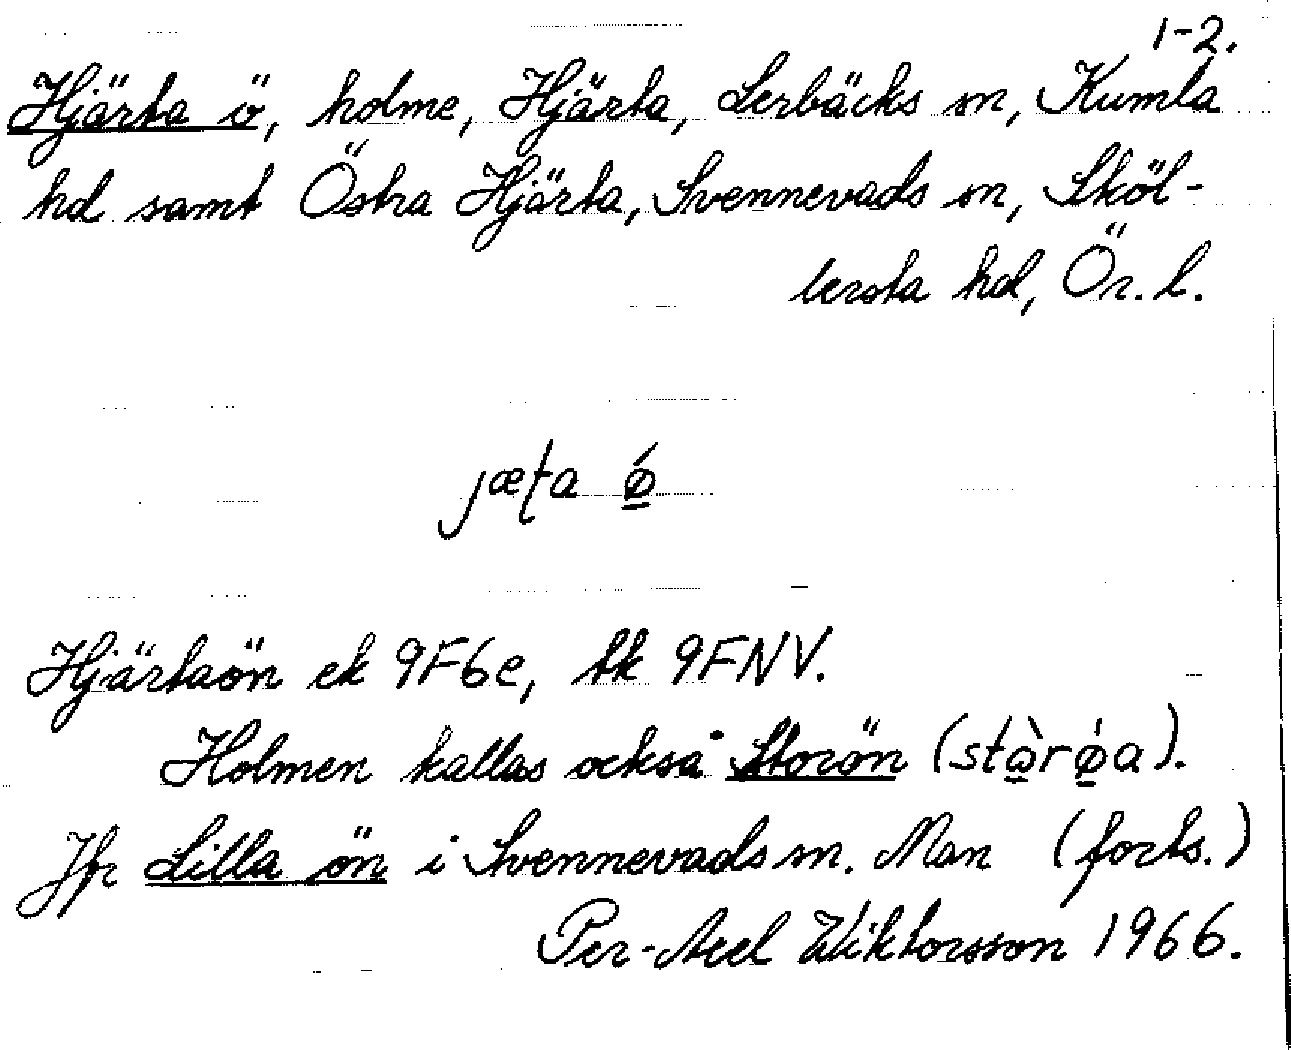 1-2.
Hjärta ö, holme, Hjärta, Lerbäcks sn, Kumla
hd samt Östra Hjärta, Svennevads sn, Sköl-
lersta hd, Ör. l.
jæʈa ǿ̱
Hjärtaön ek 9F6e, tk 9FNV.
Holmen kallas också Storön (stὼ̱rǿ̱a).
Jfr Lilla ön i Svennevads sn. Man (forts.)
Per-Axel Wiktorsson 1966.